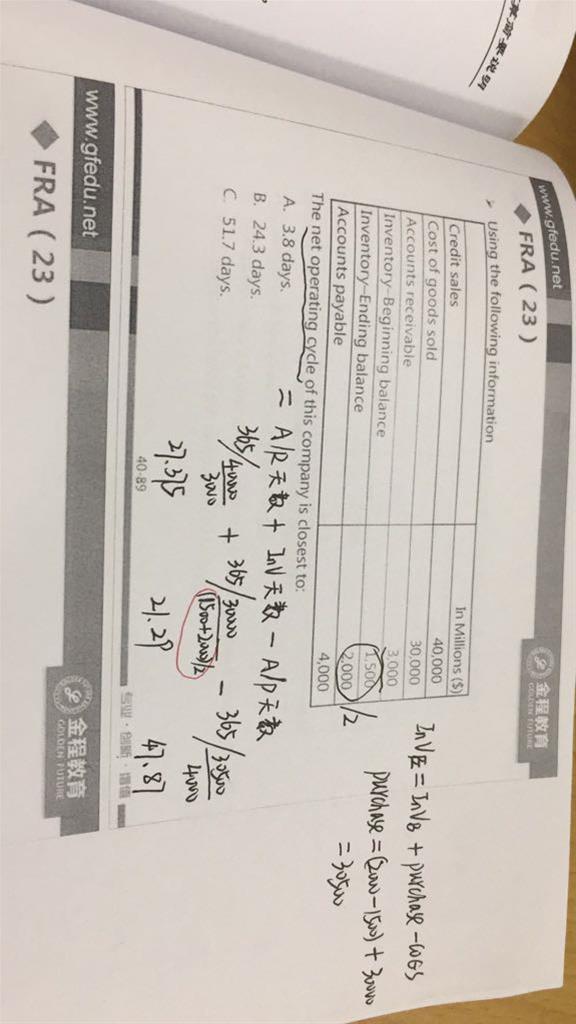 www.gfedu.net
金程教育
GOLDEN FUTURE
◆ FRA ( 23 )
➢ Using the following information
In Millions ($)
Credit sales 40,000
Cost of goods sold 30,000
Accounts receivable 3,000
Inventory-Beginning balance 1,500
Inventory-Ending balance 2,000 /2
Accounts payable 4,000
The net operating cycle of this company is closest to:
A. 3.8 days.
B. 24.3 days.
C. 51.7 days.
= A/R天数 + Inv天数 - A/P天数
365/40000/3000 + 365/30000/(1500+2000)/2 - 365/30500/4000
27.375 21.29 47.87
InvE = InvB + purchase - COGS
purchase = (2000-1500) + 30000
= 30500
40-89
专业·创新·增值
www.gfedu.net
金程教育
GOLDEN FUTURE
◆ FRA ( 23 )